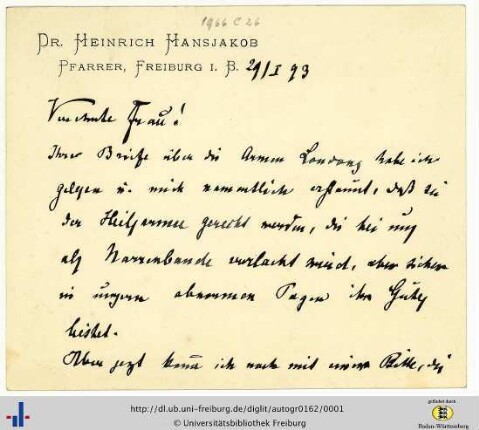 1966 C 26
DR. HEINRICH HANSJAKOB
PFARRER, FREIBURG I. B. 29/I 93
Verehrte Frau!
Ihre Briefe über die Armen Londons habe ich
gelesen u. mich namentlich erstaunt, daß Sie
der Heilsarmee gerecht werden, die bei uns
als Narrenbande verlacht wird, aber sicher
in unsern Tagen ihr Gutes
leistet.
Aber jetzt komme ich noch mit einer Bitte, die
http://dl.ub.uni-freiburg.de/diglit/autogr0162/0001
© Universitätsbibliothek Freiburg
gefördert durch
Baden-Württemberg